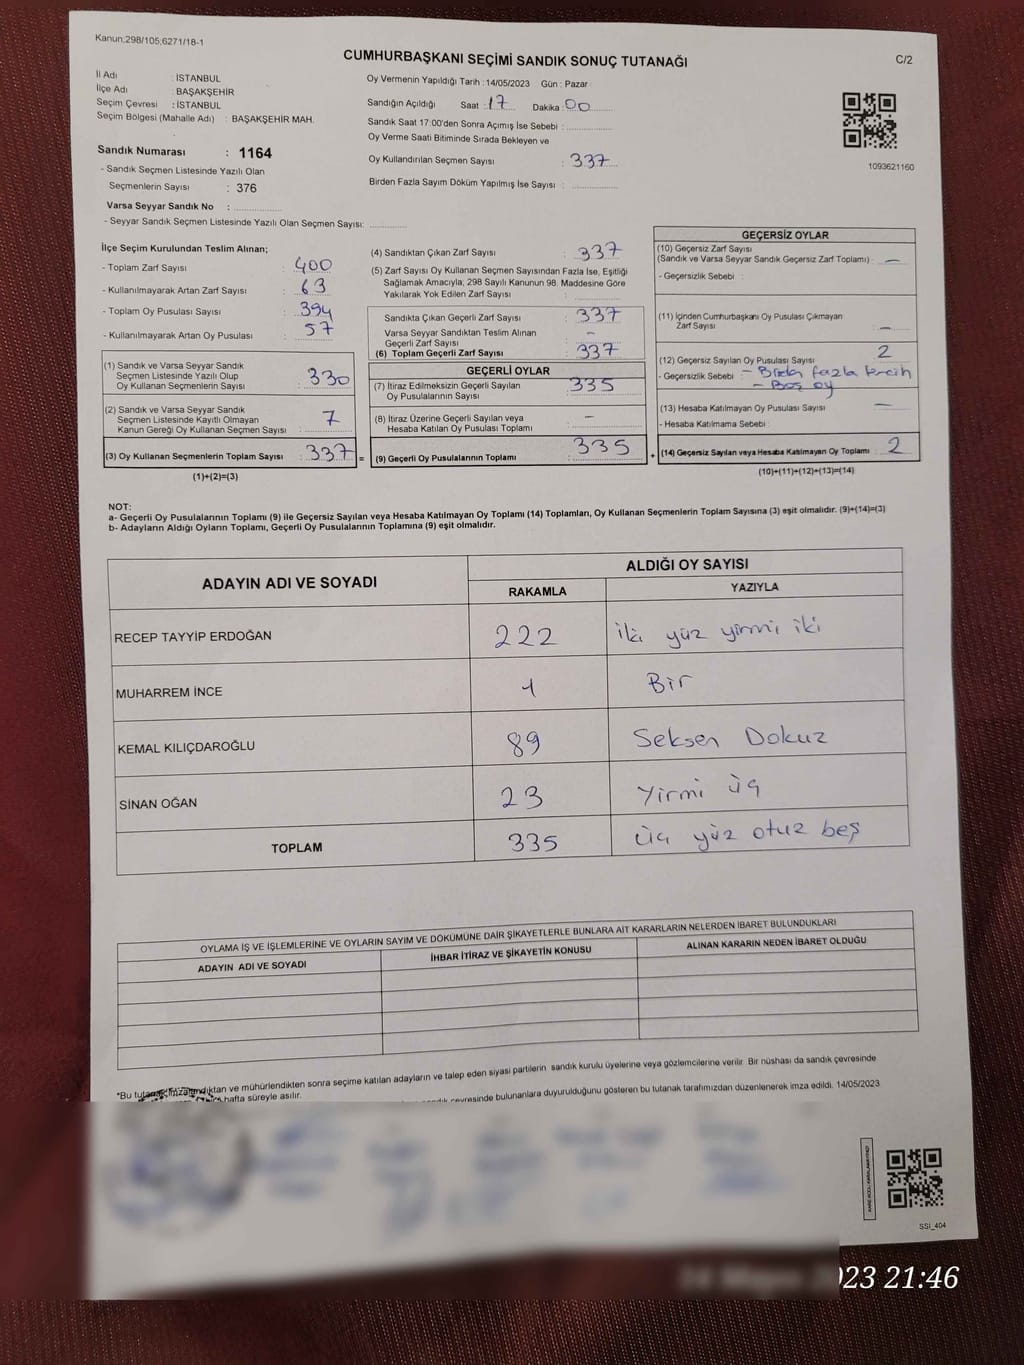 Kanun;298/105;6271/18-1
CUMHURBAŞKANI SEÇİMİ SANDIK SONUÇ TUTANAĞI
C/2
İl Adı : İSTANBUL
İlçe Adı : BAŞAKŞEHİR
Seçim Çevresi : İSTANBUL
Seçim Bölgesi (Mahalle Adı) : BAŞAKŞEHİR MAH.
Sandık Numarası : 1164
- Sandık Seçmen Listesinde Yazılı Olan
Seçmenlerin Sayısı : 376
Varsa Seyyar Sandık No :
- Seyyar Sandık Seçmen Listesinde Yazılı Olan Seçmen Sayısı:
Oy Vermenin Yapıldığı Tarih : 14/05/2023 Gün : Pazar
Sandığın Açıldığı Saat : 17 Dakika : 00
Sandık Saat 17:00'den Sonra Açımış İse Sebebi :
Oy Verme Saati Bitiminde Sırada Bekleyen ve
Oy Kullandırılan Seçmen Sayısı : 337
Birden Fazla Sayım Döküm Yapılmış İse Sayısı :
1093621160
İlçe Seçim Kurulundan Teslim Alınan;
- Toplam Zarf Sayısı : 400
- Kullanılmayarak Artan Zarf Sayısı : 63
- Toplam Oy Pusulası Sayısı : 394
- Kullanılmayarak Artan Oy Pusulası : 57
(1) Sandık ve Varsa Seyyar Sandık
Seçmen Listesinde Yazılı Olup
Oy Kullanan Seçmenlerin Sayısı : 330
(2) Sandık ve Varsa Seyyar Sandık
Seçmen Listesinde Kayıtlı Olmayan
Kanun Gereği Oy Kullanan Seçmen Sayısı : 7
(3) Oy Kullanan Seçmenlerin Toplam Sayısı : 337 =
(1)+(2)=(3)
(4) Sandıktan Çıkan Zarf Sayısı : 337
(5) Zarf Sayısı Oy Kullanan Seçmen Sayısından Fazla İse, Eşitliği
Sağlamak Amacıyla; 298 Sayılı Kanunun 98. Maddesine Göre
Yakılarak Yok Edilen Zarf Sayısı :
Sandıkta Çıkan Geçerli Zarf Sayısı : 337
Varsa Seyyar Sandıktan Teslim Alınan
Geçerli Zarf Sayısı : -
(6) Toplam Geçerli Zarf Sayısı : 337
GEÇERLİ OYLAR
(7) İtiraz Edilmeksizin Geçerli Sayılan
Oy Pusulalarının Sayısı : 335
(8) İtiraz Üzerine Geçerli Sayılan veya
Hesaba Katılan Oy Pusulası Toplamı : -
(9) Geçerli Oy Pusulalarının Toplamı : 335 +
GEÇERSİZ OYLAR
(10) Geçersiz Zarf Sayısı
(Sandık ve Varsa Seyyar Sandık Geçersiz Zarf Toplamı) : -
- Geçersizlik Sebebi :
(11) İçinden Cumhurbaşkanı Oy Pusulası Çıkmayan
Zarf Sayısı : -
(12) Geçersiz Sayılan Oy Pusulası Sayısı : 2
- Geçersizlik Sebebi : - Birden fazla tercih
- Boş oy
(13) Hesaba Katılmayan Oy Pusulası Sayısı : -
- Hesaba Katılmama Sebebi :
(14) Geçersiz Sayılan veya Hesaba Katılmayan Oy Toplamı : 2
(10)+(11)+(12)+(13)=(14)
NOT:
a- Geçerli Oy Pusulalarının Toplamı (9) ile Geçersiz Sayılan veya Hesaba Katılmayan Oy Toplamı (14) Toplamları, Oy Kullanan Seçmenlerin Toplam Sayısına (3) eşit olmalıdır. (9)+(14)=(3)
b- Adayların Aldığı Oyların Toplamı, Geçerli Oy Pusulalarının Toplamına (9) eşit olmalıdır.
ADAYIN ADI VE SOYADI
ALDIĞI OY SAYISI
RAKAMLA YAZIYLA
RECEP TAYYİP ERDOĞAN 222 İki yüz yirmi iki
MUHARREM İNCE 1 Bir
KEMAL KILIÇDAROĞLU 89 Seksen Dokuz
SİNAN OĞAN 23 Yirmi üç
TOPLAM 335 üç yüz otuz beş
OYLAMA İŞ VE İŞLEMLERİNE VE OYLARIN SAYIM VE DÖKÜMÜNE DAİR ŞİKAYETLERLE BUNLARA AİT KARARLARIN NELERDEN İBARET BULUNDUKLARI
ADAYIN ADI VE SOYADI İHBAR İTİRAZ VE ŞİKAYETİN KONUSU ALINAN KARARIN NEDEN İBARET OLDUĞU
*Bu tutanak imzalandıktan ve mühürlendikten sonra seçime katılan adayların ve talep eden siyasi partilerin sandık kurulu üyelerine veya gözlemcilerine verilir. Bir nüshası da sandık çevresinde
hafta süreyle asılır.
sandık çevresinde bulunanlara duyurulduğunu gösteren bu tutanak tarafımızdan düzenlenerek imza edildi. 14/05/2023
SSİ_404
023 21:46